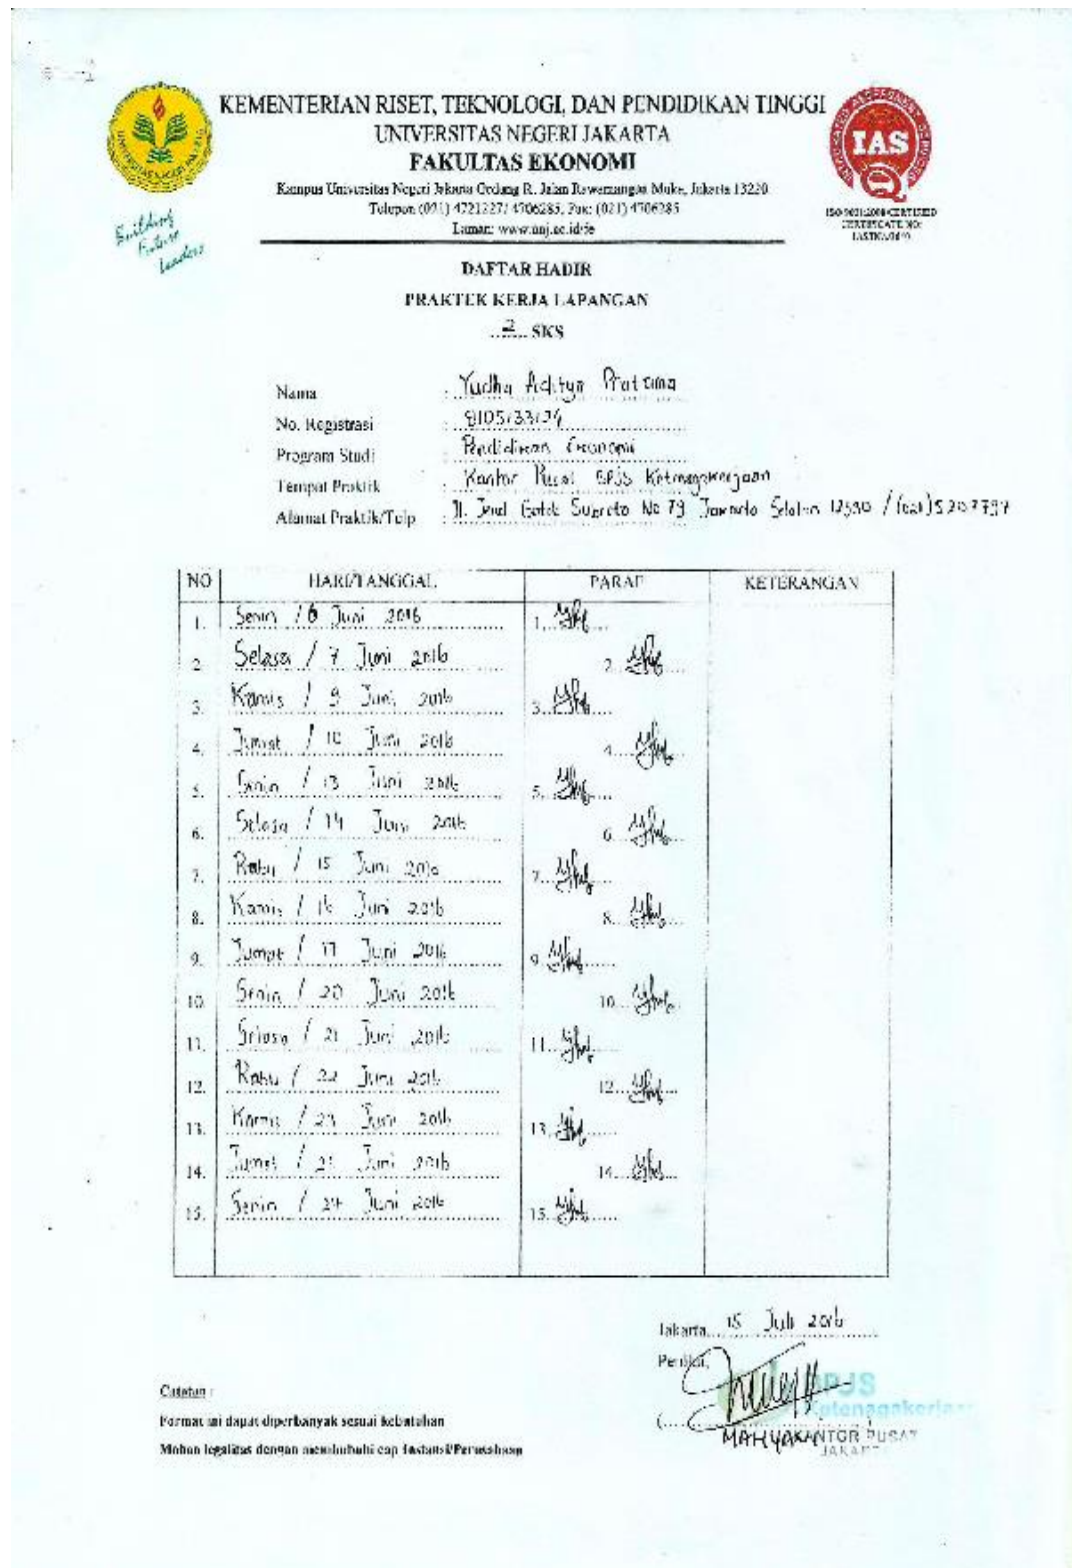 KEMENTERIAN RISET, TEKNOLOGI, DAN PENDIDIKAN TINGGI
UNIVERSITAS NEGERI JAKARTA
FAKULTAS EKONOMI
Kampus Universitas Negeri Jakarta Gedung R, Jalan Rawamangun Muka, Jakarta 13220
Telepon (021) 4721227/ 4706285, Fax: (021) 4706285
Laman: www.unj.ac.id/fe
IAS
ISO 9001:2008 CERTIFIED
CERTIFICATE NO:
Building
Future
Leaders
DAFTAR HADIR
PRAKTEK KERJA LAPANGAN
2 SKS
Nama : Yudha Aditya Pratama
No. Registrasi : 8105133124
Program Studi : Pendidikan Ekonomi
Tempat Praktik : Kantor Pusat BPJS Ketenagakerjaan
Alamat Praktik/Telp : Jl. Jend Gatot Subroto No 79 Jakarta Selatan 12930 / (021)5207797
NO HARI/TANGGAL PARAF KETERANGAN
1. Senin / 6 Juni 2016 1.
2. Selasa / 7 Juni 2016 2.
3. Kamis / 9 Juni 2016 3.
4. Jumat / 10 Juni 2016 4.
5. Senin / 13 Juni 2016 5.
6. Selasa / 14 Juni 2016 6.
7. Rabu / 15 Juni 2016 7.
8. Kamis / 16 Juni 2016 8.
9. Jumat / 17 Juni 2016 9.
10. Senin / 20 Juni 2016 10.
11. Selasa / 21 Juni 2016 11.
12. Rabu / 22 Juni 2016 12.
13. Kamis / 23 Juni 2016 13.
14. Jumat / Juni 2016 14.
15. Senin / Juni 2016 15.
Jakarta, 15 Juli 2016
Penilai,
BPJS
Ketenagakerjaan
KANTOR PUSAT
JAKARTA
Catatan :
Format ini dapat diperbanyak sesuai kebutuhan
Mohon legalitas dengan membubuhi cap Instansi/Perusahaan